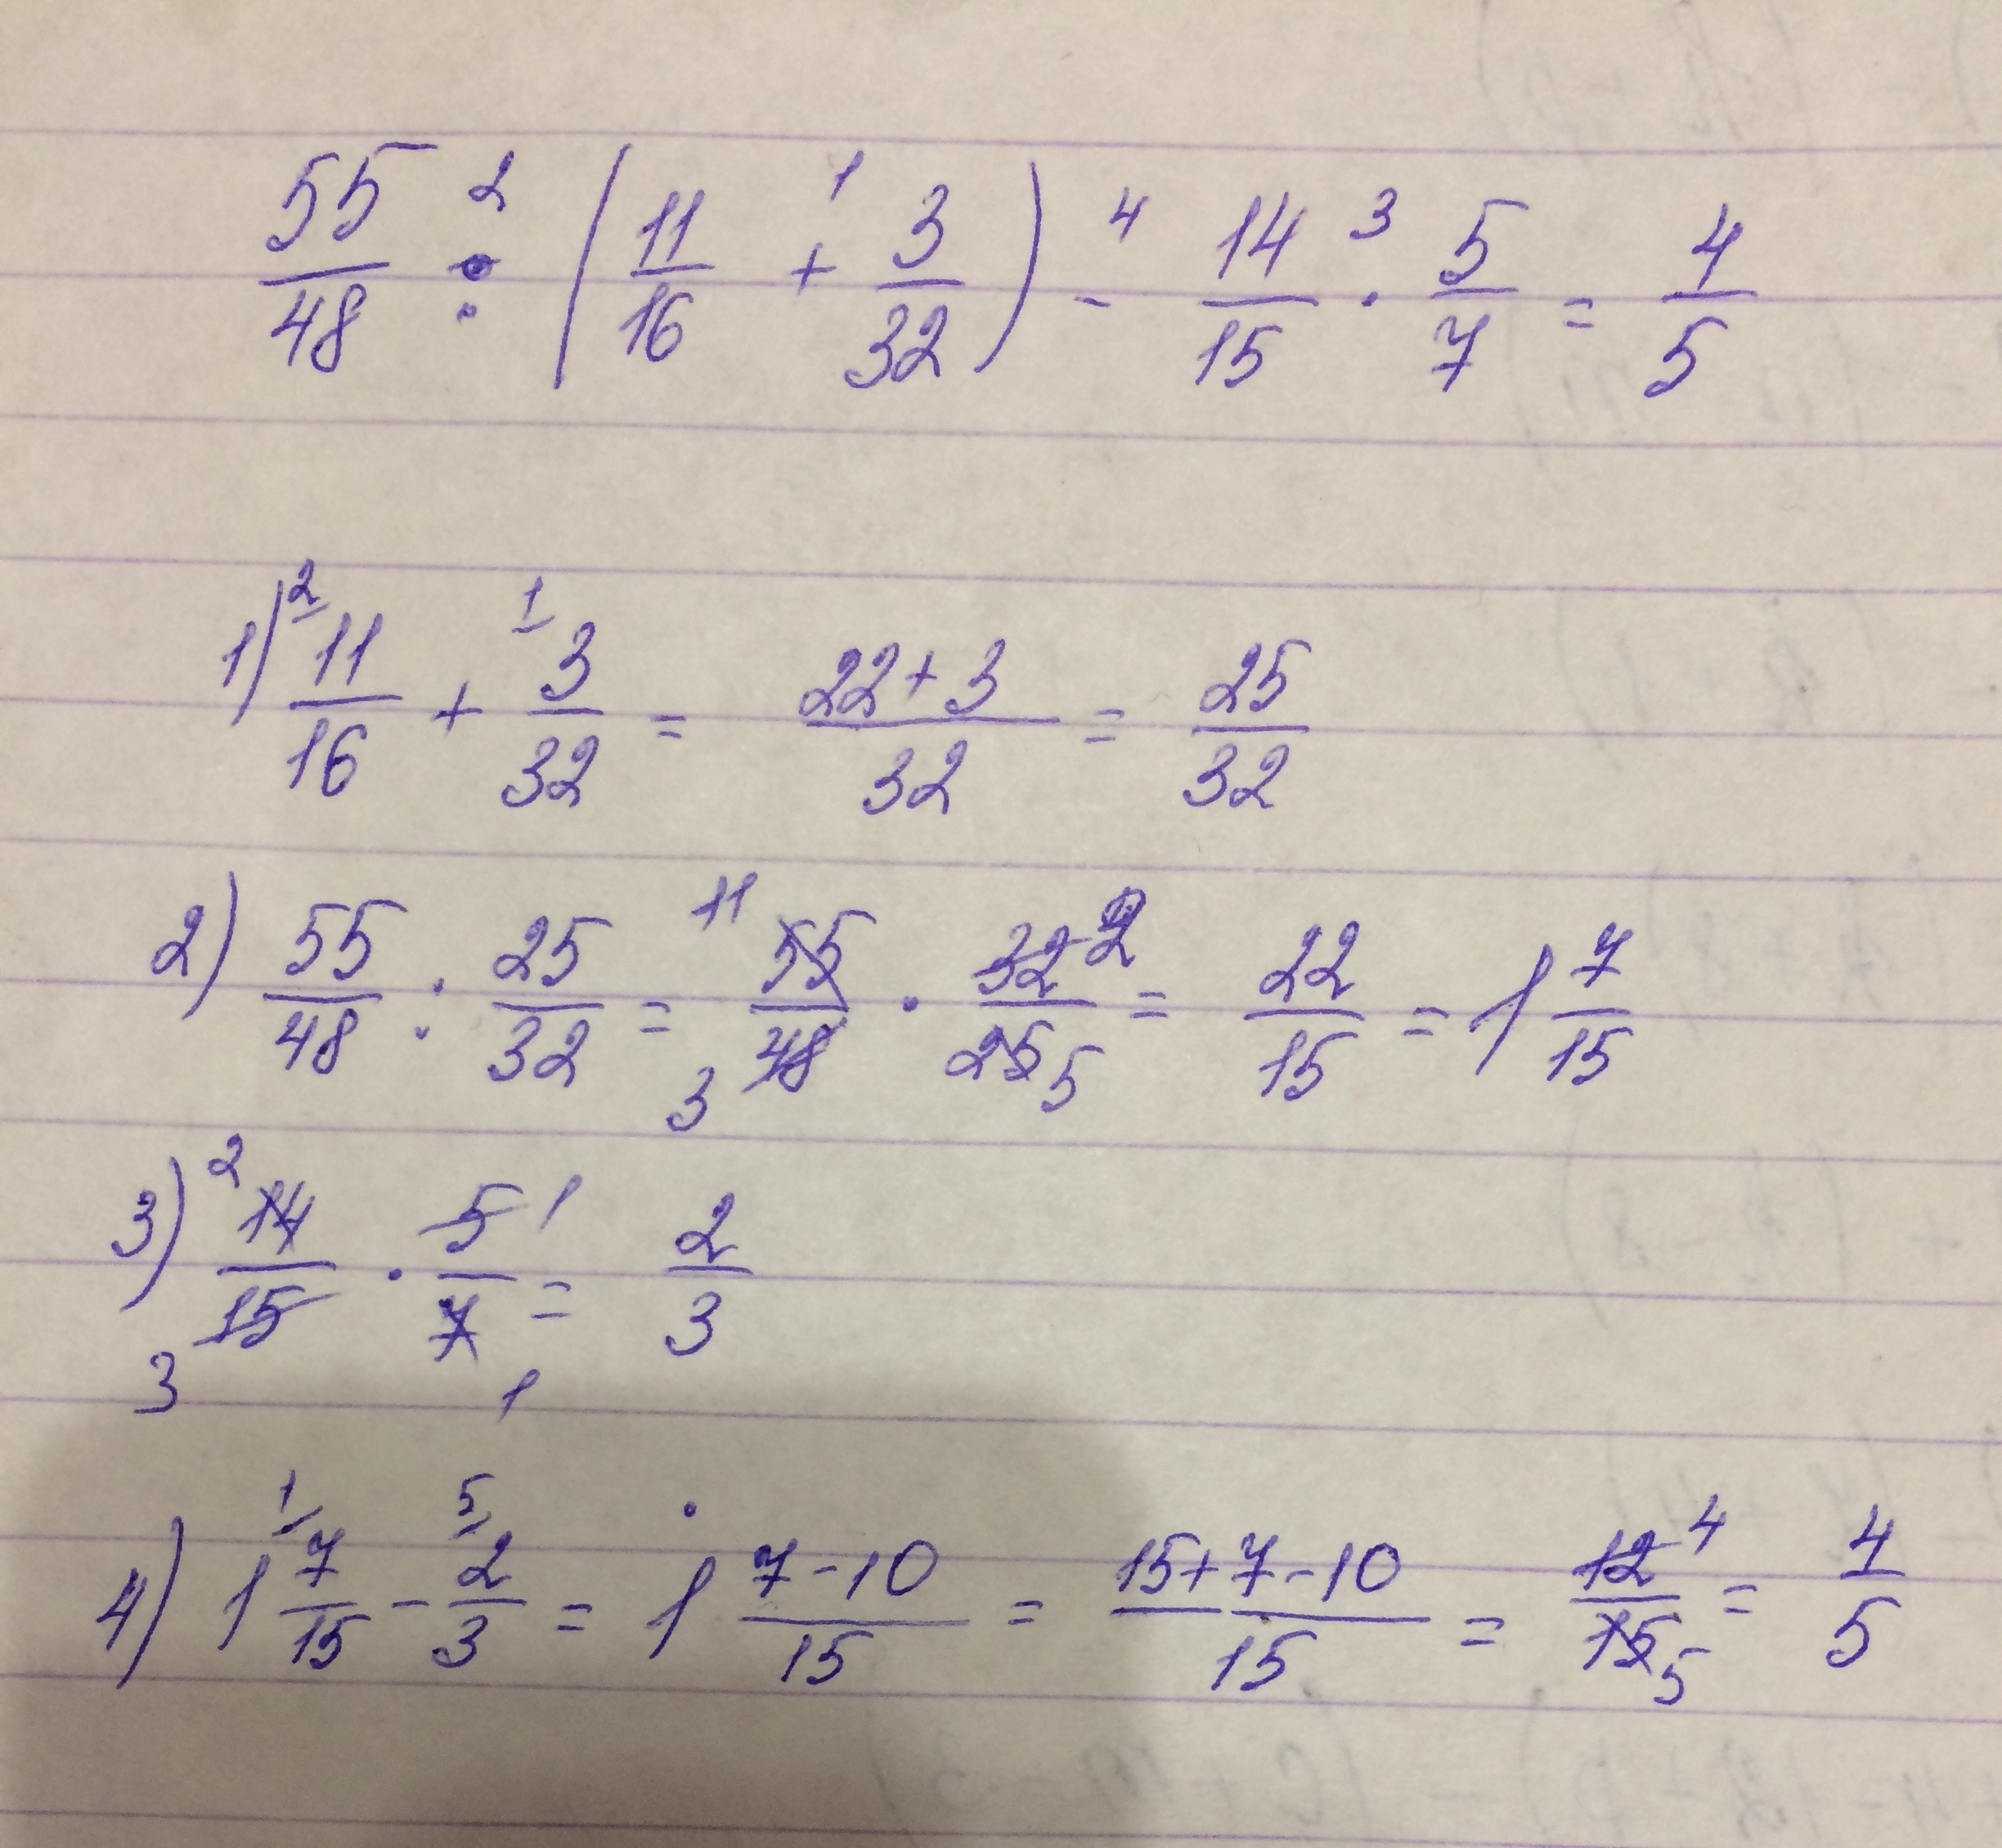 55/48 :² (11/16 +¹ 3/32) -⁴ 14/15 ·³ 5/7 = 4/5
1) ²11/16 + ¹3/32 = (22+3)/32 = 25/32
2) 55/48 : 25/32 = 11 55/48 3 · 32 2/25 5 = 22/15 = 1 7/15
3) 2 14/15 3 · 5 1/7 1 = 2/3
4) 1 ¹7/15 - ⁵2/3 = 1 (7-10)/15 = (15+7-10)/15 = 12 4/15 5 = 4/5